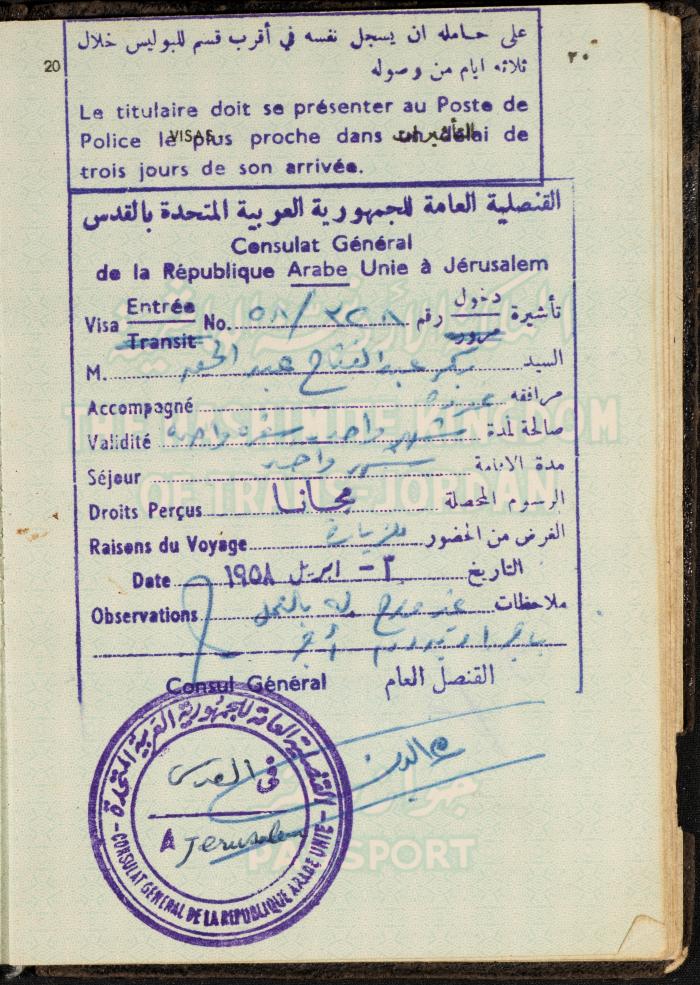 على حامله ان يسجل نفسه في أقرب قسم للبوليس خلال
ثلاثه ايام من وصوله
20
٢٠
Le titulaire doit se présenter au Poste de
Police le plus proche dans un délai de
VISAS التأشيرات
trois jours de son arrivée.
القنصلية العامة للجمهورية العربية المتحدة بالقدس
Consulat Général
de la République Arabe Unie à Jérusalem
Visa Entrée No. ٥٨/٣٢٨ رقم دخول تأشيرة
Transit مرور
M. بكر عبد الفتاح عبد السيد
Accompagné مرافقه
Validité شهر واحد سفرة واحدة صالحة لمدة
Séjour شهر واحد مدة الاقامة
Droits Perçus مجانا الرسوم المحصلة
Raisons du Voyage للزيارة الغرض من الحضور
Date ٣ - ابريل ١٩٥٨ التاريخ
Observations غير مصرح له بالعمل ملاحظات
باجر او بدون أجر
Consul Général القنصل العام
القنصلية العامة للجمهورية العربية المتحدة
في القدس
A Jerusalem
CONSULAT GÉNÉRAL DE LA REPUBLIQUE ARABE UNIE
THE HASHIMITE KINGDOM
OF TRANS-JORDAN
جواز سفر
PASSPORT